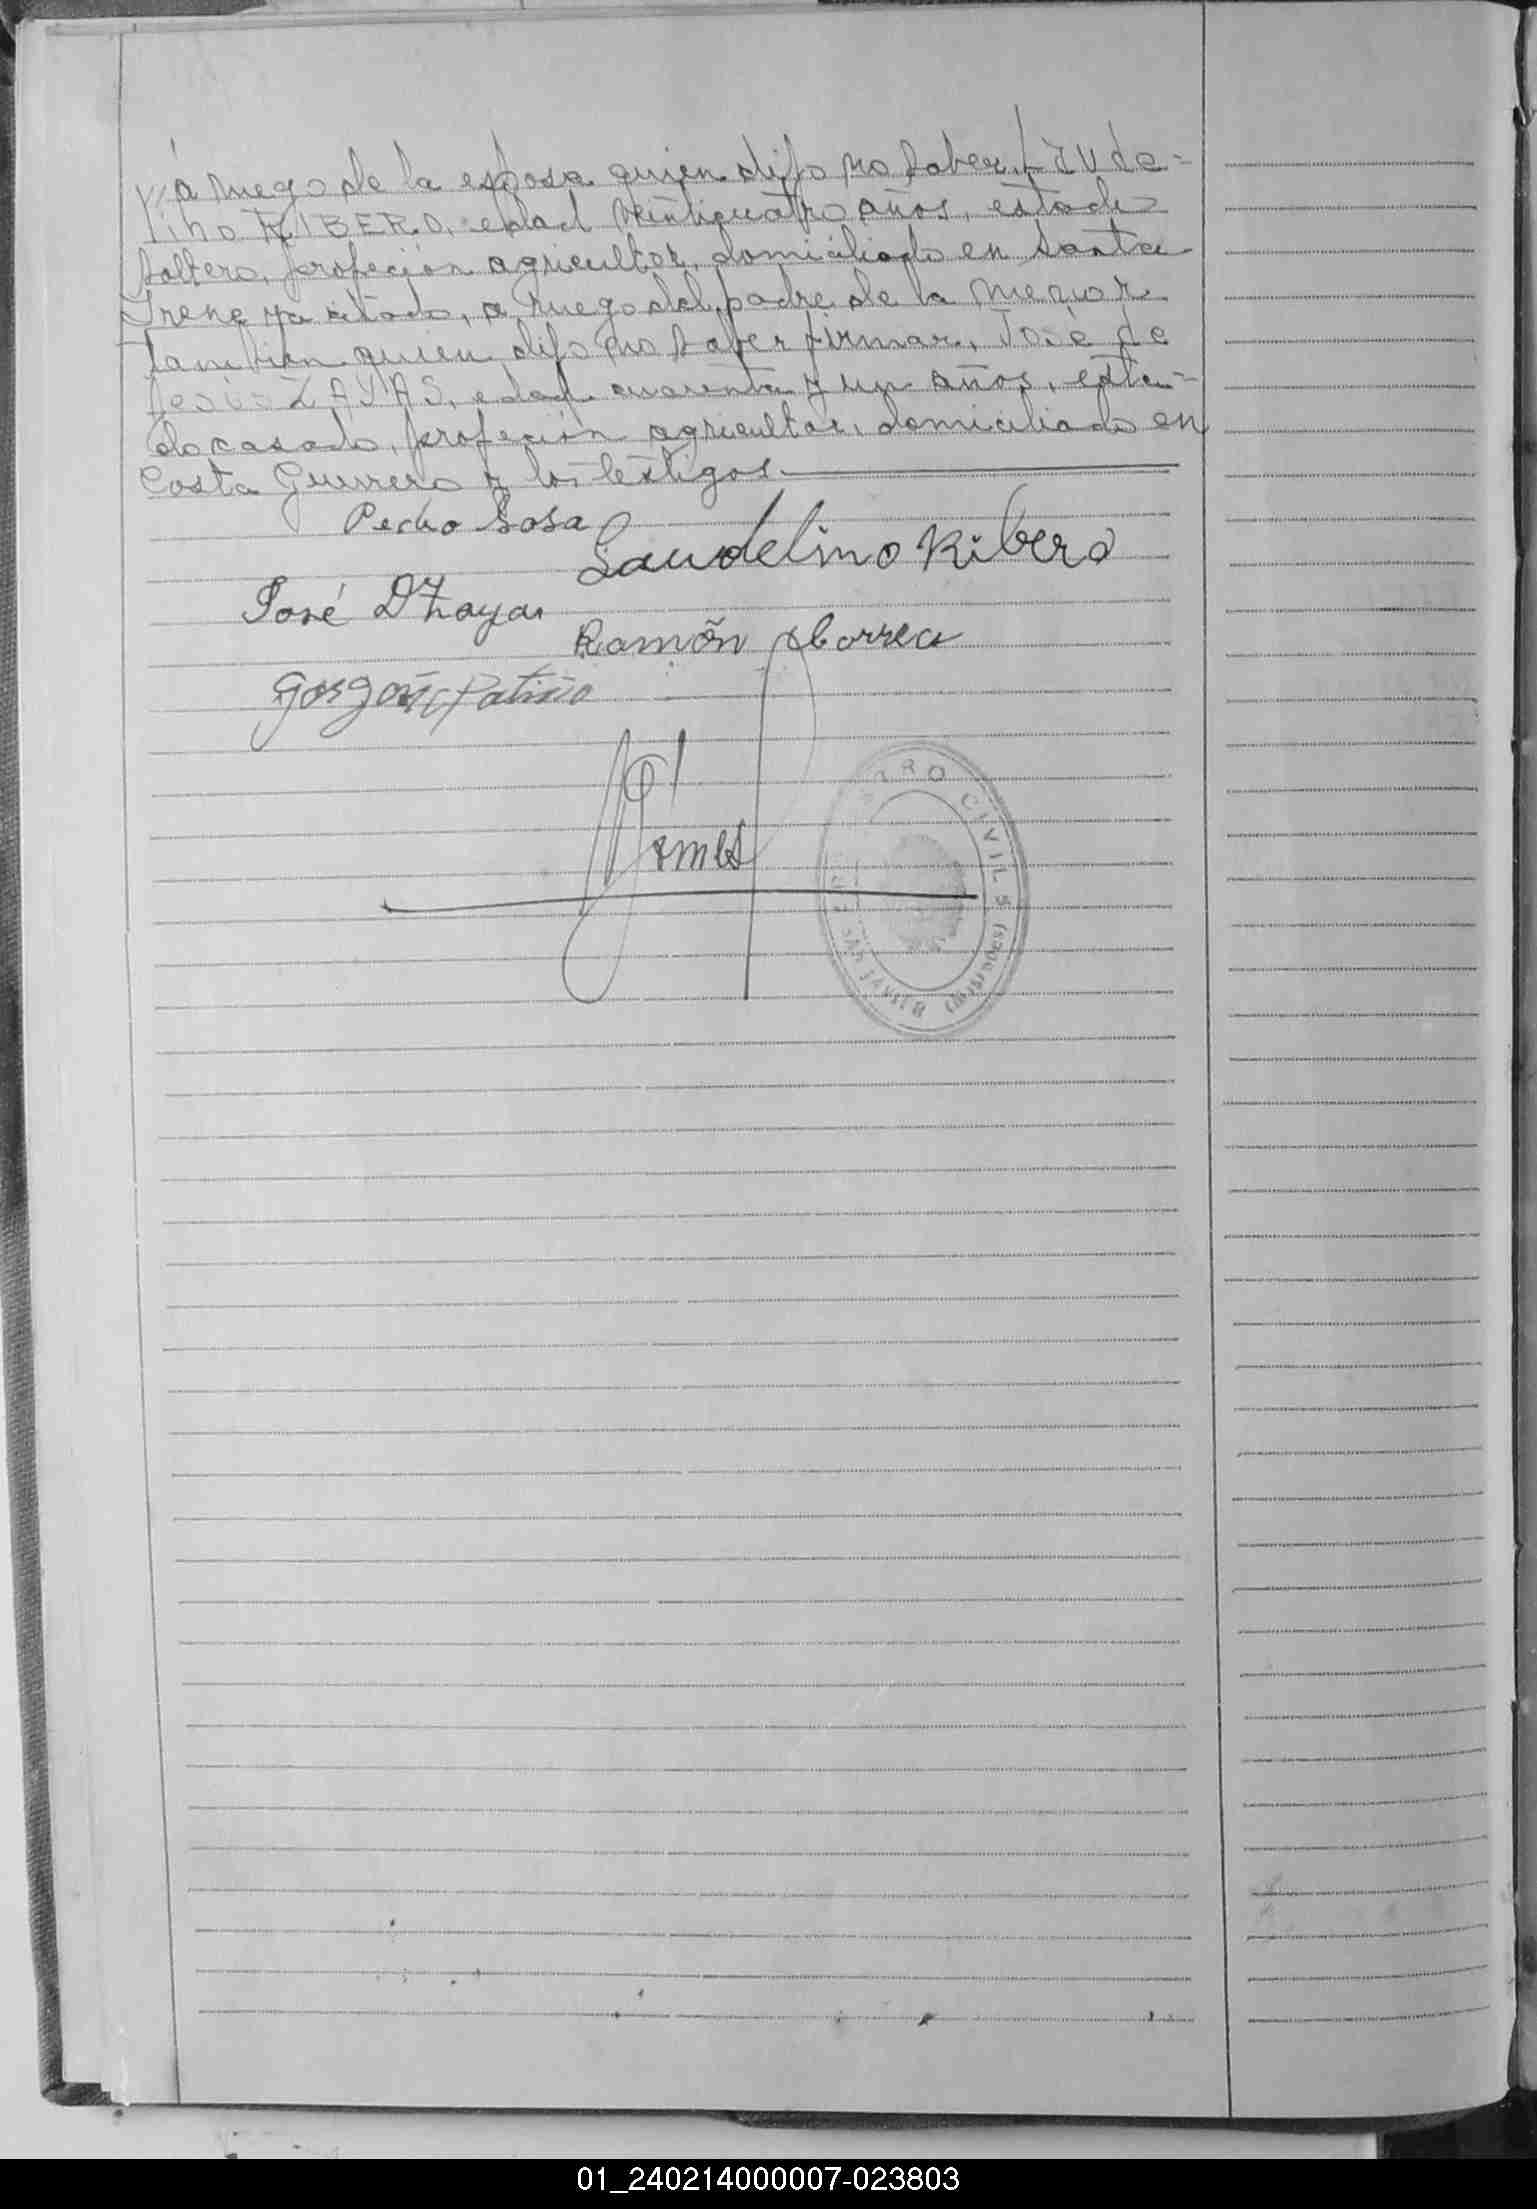 y a ruego de la esposa quien dijo no saber, Laude-
lino RIBERO, edad veinticuatro años, estado
soltero, profeción agricultor, domiciliado en Santa
Irene ya citado, a ruego del padre de la menor
tambien quien dijo no saber firmar, José de
Jesús ZAYAS, edad cuarenta y un años, esta-
do casado, profeción agricultor, domiciliado en
Costa Guerrero y los testigos.
Pedro Sosa
Laudelino Ribero
José D Zayas
Ramón Correa
Patiño
REGISTRO CIVIL
SAN JAVIER (Misiones)
01_240214000007-023803